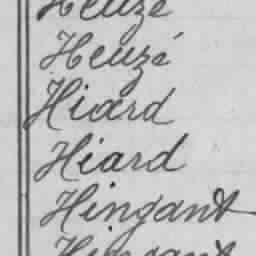 Heuzé
Heuzé
Hiard
Hiard
Hingant
Hingant